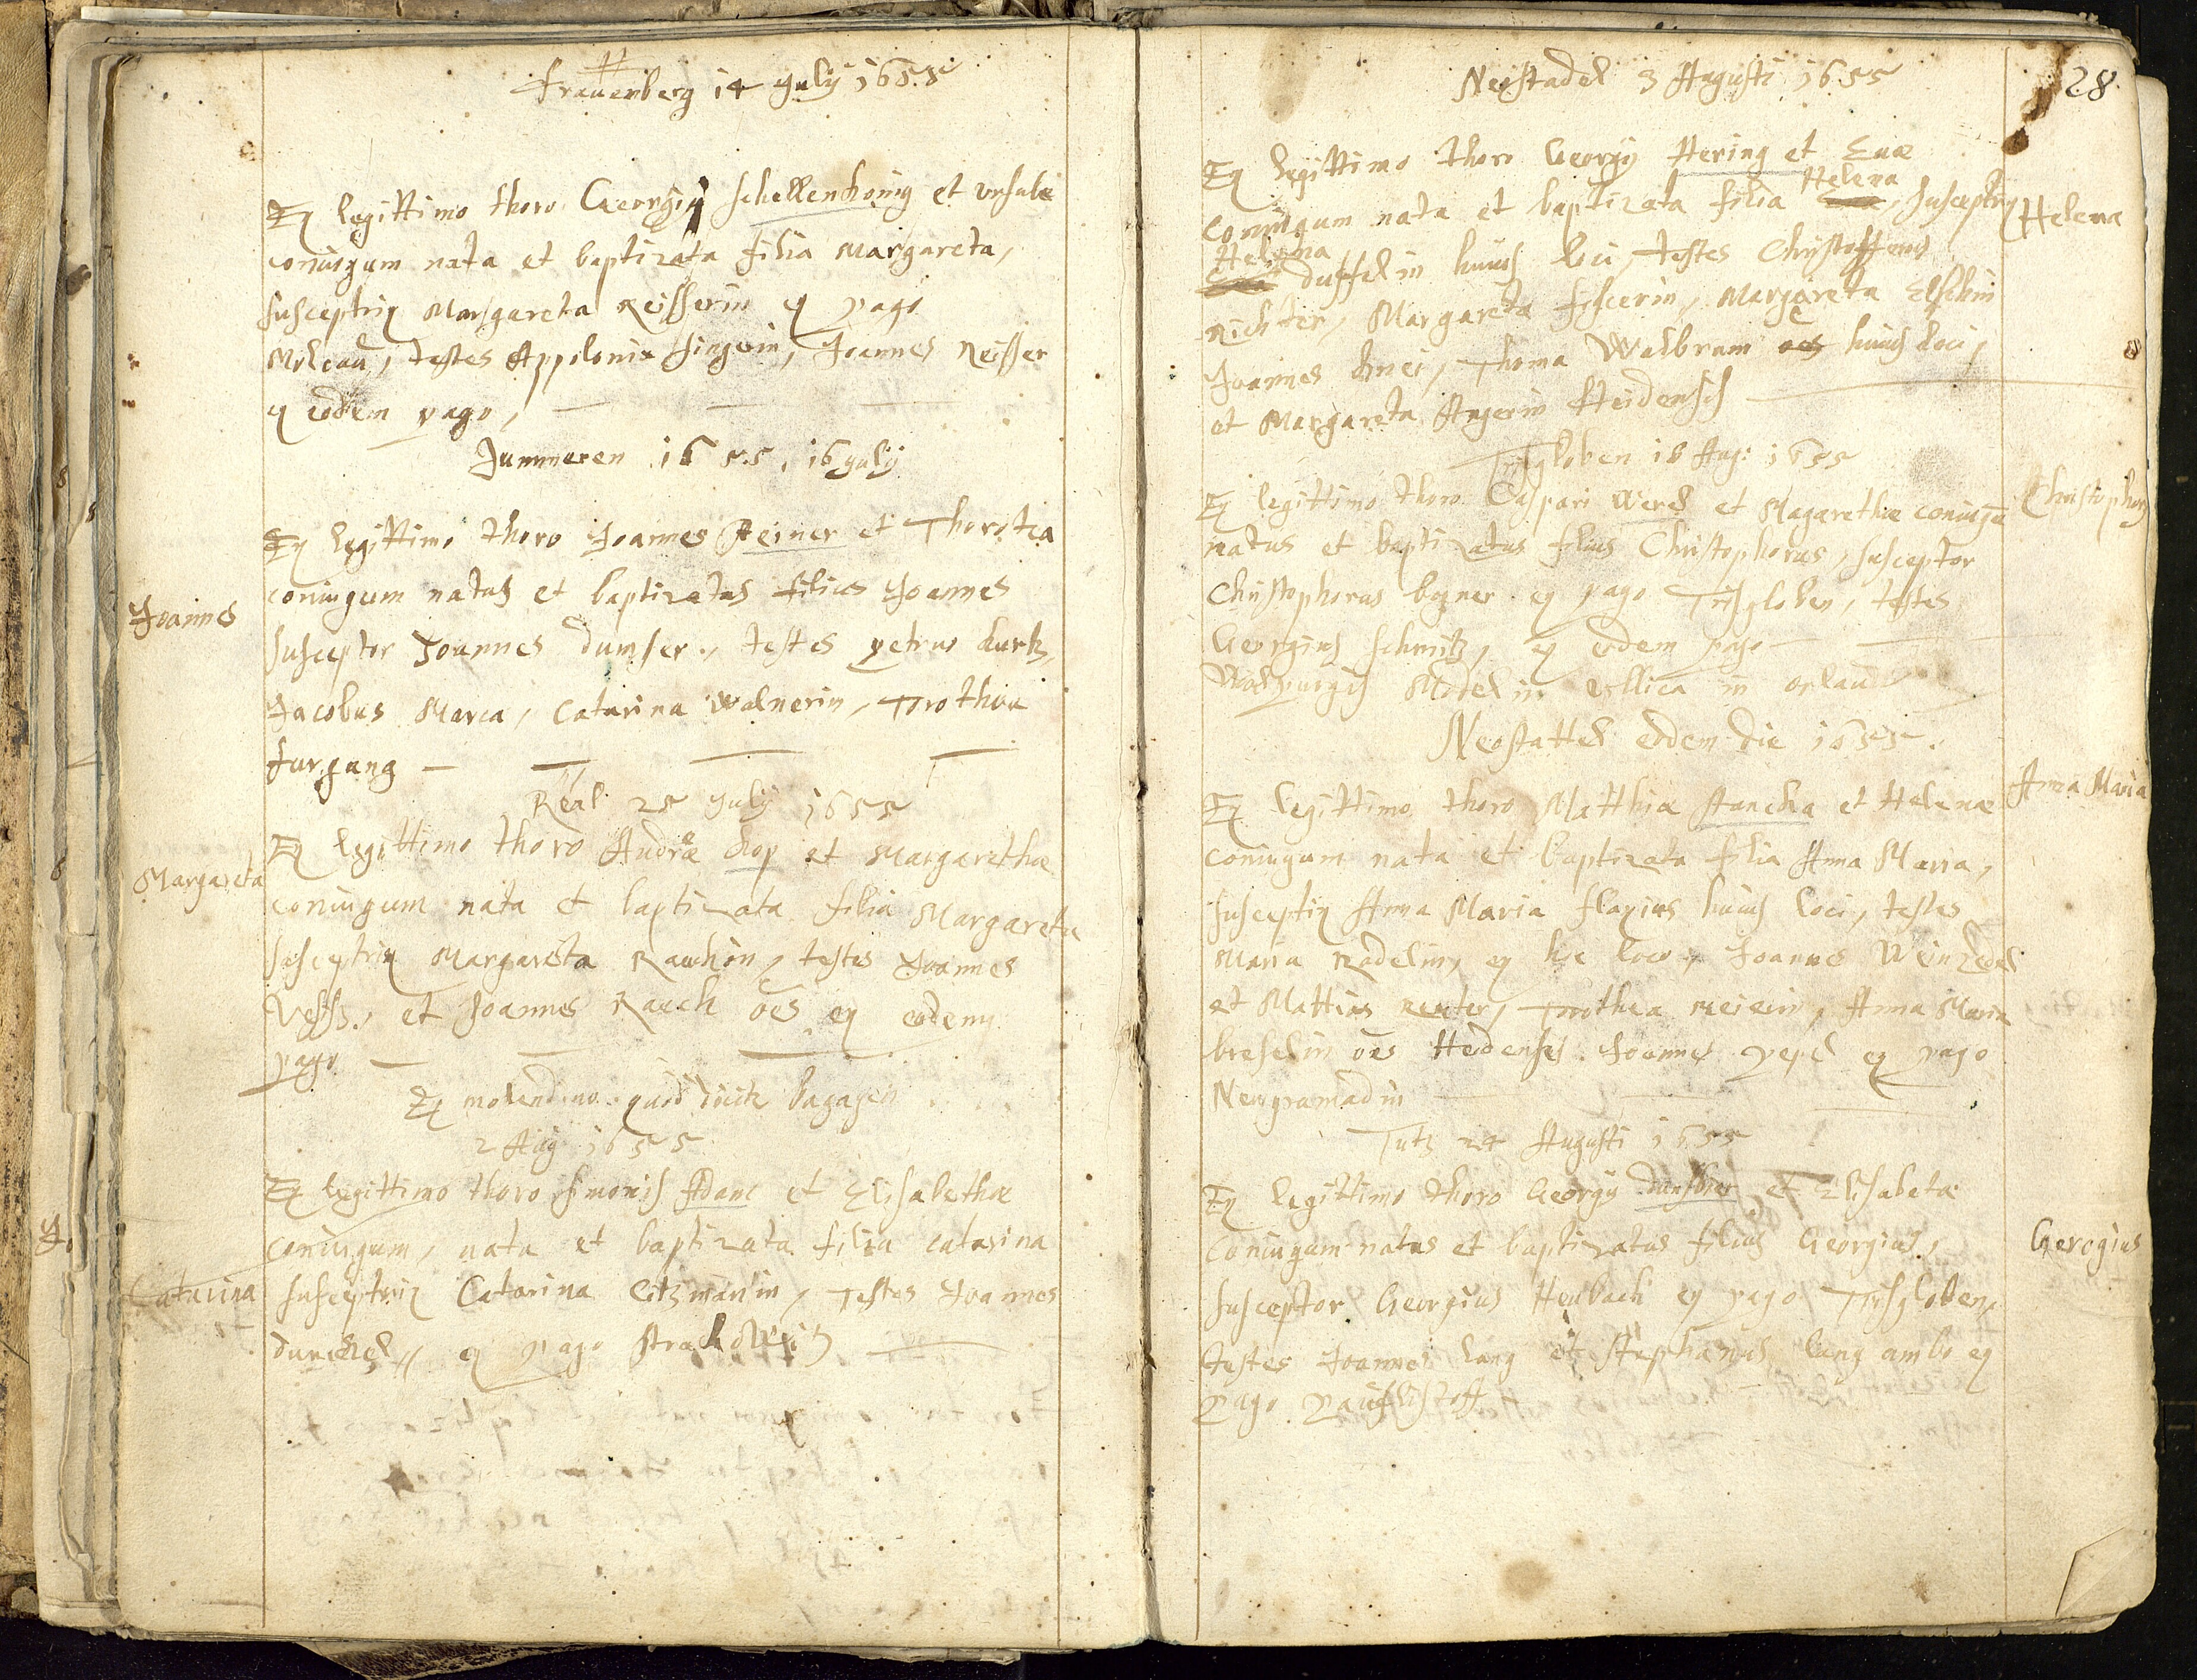 Frauenberg 14 July 1655
Ex legittimo thoro Georgij Schellenkönig et Ursulæ
coniugum nata et baptizata filia Margareta,
susceptrix Margareta Reisserin ex pago
testes Appolonia Singerin, Joannes Reisser
ex eodem pago,
Jummeren 1655, 16 July
Ex legittimo thoro Joannes Heiner et Thorotea
coniugum natus et baptizatus filius Joannes
Joannes
susceptor Joannes dumser, testes petrus kurtz,
Jacobus Marca, Catarina Walnerin, Trothea
furgang
Real 25 July 1655
Ex legittimo thoro Andræ kop et Margarethæ
Margareta
coniugum nata et baptizata filia Margareta
susceptrix Margareta Rauchin, testes Joannes
et Joannes Rauch oēs ex eodem
pago
Ex molendino quod
2 Aug 1655
Ex legittimo thoro Simonis Adam et Elisabethæ
coniugum, nata et baptizata filia Catarina
Catarina
susceptrix Catarina Litzmanin, Testes Joannes
ex pago
28
Neostadel 3 Augusti 1655
Ex legittimo thoro Georgij Hering et Euæ
Helena
coniugum nata et baptizata filia Eua, susceptrix
Helena
Helena
Eua dusselin huius loci, testes Christoffens
Richter, Margareta fischerin, Margareta Elschin
Joannes knei, Thoma Walbrum oēs huius loci,
et Margareta Angerin Heidensis
Trisgloben 18 Aug: 1655
Ex legittimo thoro Caspari Werd et Magarethæ coniugū
Christophorus
natus et baptizatus filius Christophorus, susceptor
Christophorus bogner ex pago Trisgloben, testes
Georgius Schmitz, ex eodem pago
Walpurgis Modelin in
Neostattel eodem die 1655.
Anna Maria
Ex legittimo thoro Matthiæ Stancka et Helenæ
coniugum nata et baptizata filia Anna Maria,
susceptrix Anna Maria huius loci, testes
Maria Radelin, ex hoc loco, Joannes Weinzedel
et Mattias reuter, Trothea meierin, Anna Maria
breselin oēs Heidenses. Joannes pepel ex pago
Neugramadin
Tutz 24 Augusti 1655
Ex legittimo thoro Georgij et Elisabetæ
coniugum natus et baptizatus filius Georgius,
Gerogius
susceptor Georgius Heubach ex pago Trisgloben,
testes Joannes lang et Stephanus lang ambo ex
pago